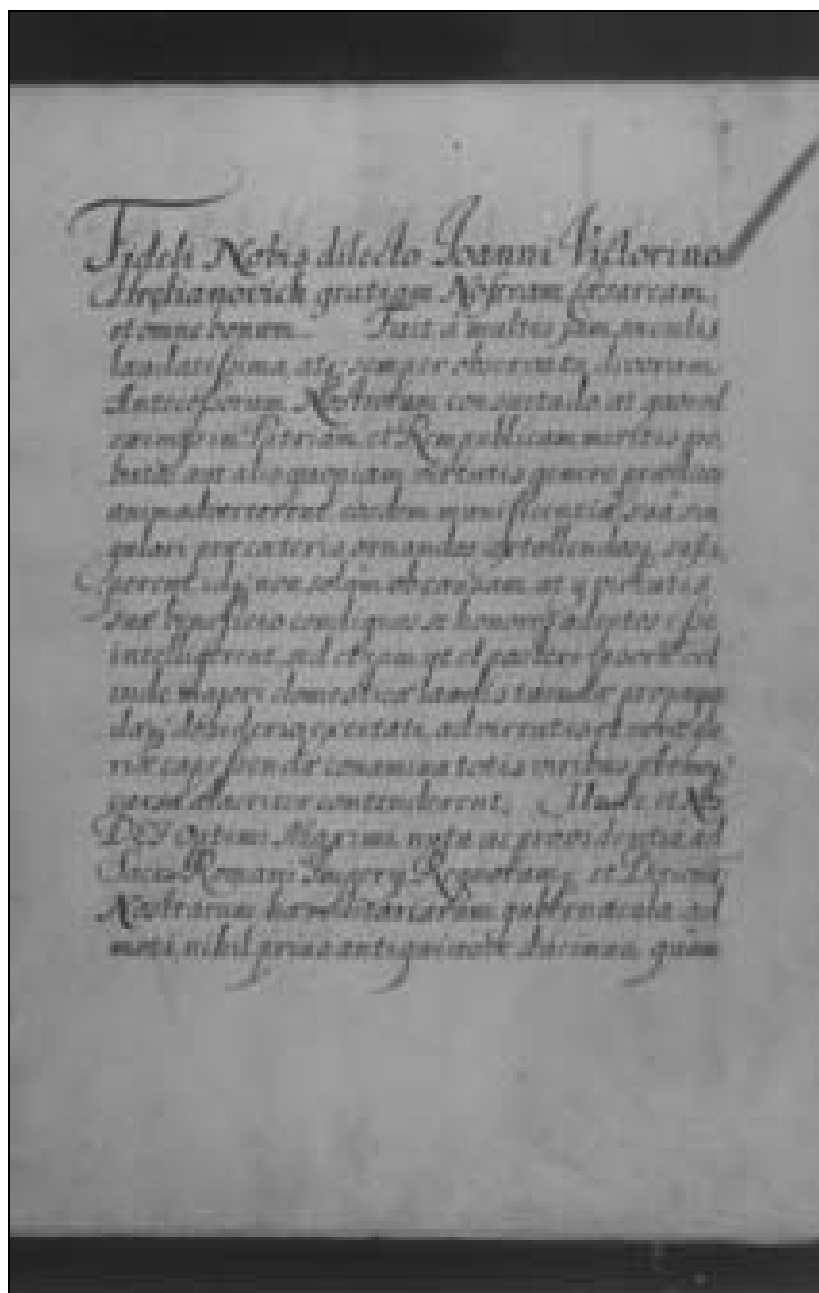 Fideli Nobis dilecto Ioanni Victorino
Hrelianovich gratiam Nostram Cæsaream,
et omne bonum. Fuit à multis jam sæculis
laudatissima, atq; semper observata divorum
Antecessorum Nostrorum consuetudo, ut quos
in Patriam, et Rempublicam meritis,
aut alio quopiam virtutis genere
animadverterent, eosdem munificentia sua sin
gulari præ cæteris ornandos, extollendosq; susci
perent, idq; non solum ob causam, ut ij virtutis
suæ beneficio condignos se honores adeptos esse
intelligerent, sed etiam ut et
inde majori domesticæ laudis propagan
dæq; desiderio excitati, ad virtutis et
capessendæ conamina totis viribus
alacriter contenderent. Unde, et Nos
DEI Optimi Maximi nutu ac providentia, ad
Sacri Romani Imperij, Regnorumq; et
Nostrarum hæreditariarum gubernacula ad
moti, nihil prius antiquiusve ducimus, quàm